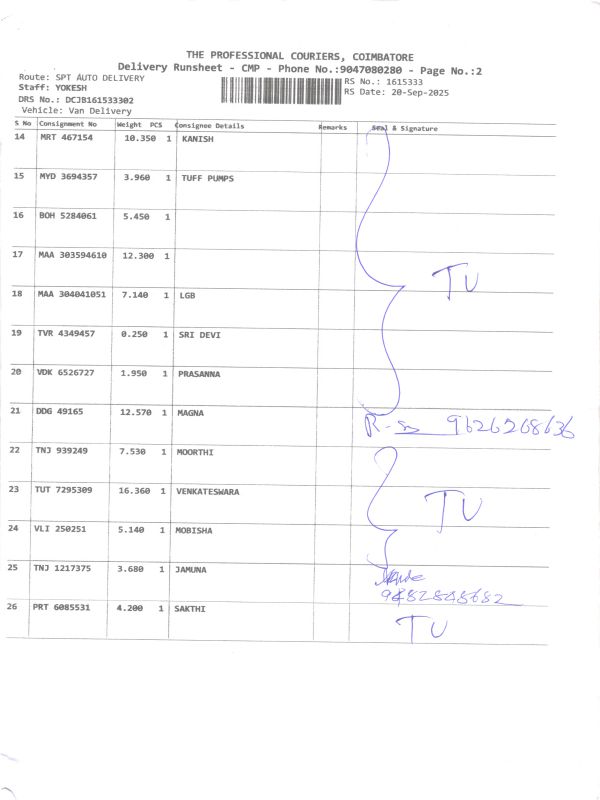 THE PROFESSIONAL COURIERS, COIMBATORE
Delivery Runsheet - CMP - Phone No.:9047080280 - Page No.:2
Route: SPT AUTO DELIVERY
Staff: YOKESH
DRS No.: DCJB161533302
Vehicle: Van Delivery
RS No.: 1615333
RS Date: 20-Sep-2025
S No Consignment No Weight PCS Consignee Details Remarks Seal & Signature
14 MRT 467154 10.350 1 KANISH
15 MYD 3694357 3.960 1 TUFF PUMPS
16 BOH 5284061 5.450 1
17 MAA 303594610 12.300 1
TU
18 MAA 304041051 7.140 1 LGB
19 TVR 4349457 0.250 1 SRI DEVI
20 VDK 6526727 1.950 1 PRASANNA
21 DDG 49165 12.570 1 MAGNA 9626268636
22 TNJ 939249 7.530 1 MOORTHI
23 TUT 7295309 16.360 1 VENKATESWARA TU
24 VLI 250251 5.140 1 MOBISHA
25 TNJ 1217375 3.680 1 JAMUNA
26 PRT 6085531 4.200 1 SAKTHI TU